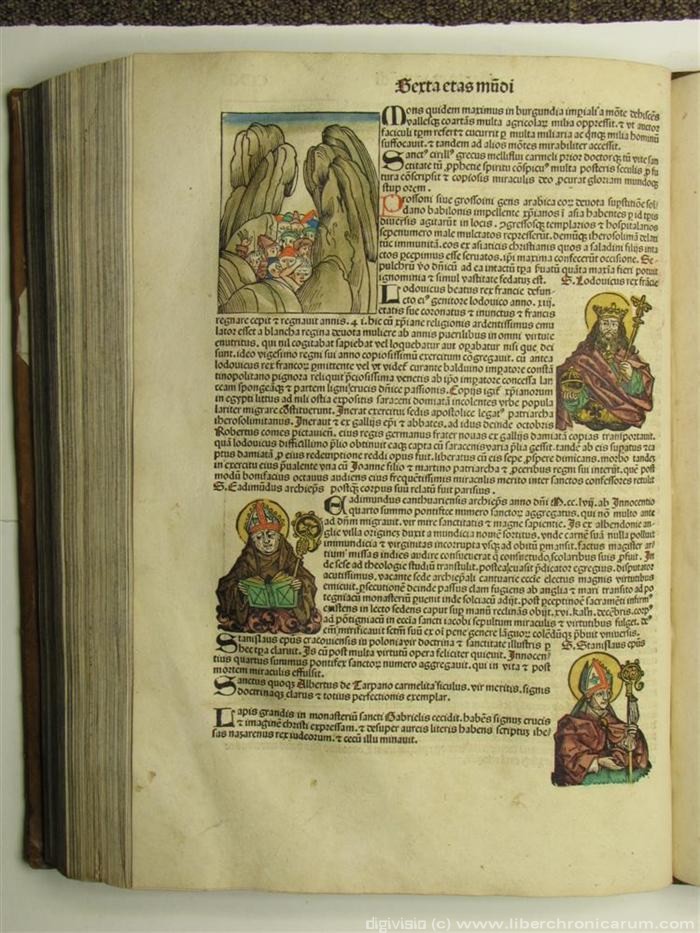 Sexta etas mūdi
Mons quidem maximus in burgundia impiali a mōte dehiscēs
vallesqȝ coartās multa agricolaꝝ milia oppressit. ⁊ vt auctor
faciculi tpm refert cucurrit p multa miliaria ac qnqȝ milia hominū
suffocauit. ⁊ tandem ad alios mōtes mirabiliter accessit.
cirill⁹ grecus melliflui carmeli prior doctorqȝ tū vite san
ctitate tū prophetie spiritu cōspicu⁹ multa posteris seculis p fu
tura cōscripsit ⁊ copiosis miraculis deo
stuporem.
Grossoni siue grossoini gens arabica
dano babilonis impellente xpianos i asia habentes p id tps
diuersis agitarūt in locis. templarios ⁊ hospitalarios
sepenumero male mulctatos represserūt. demūqȝ iherosolimā
tūc immunitā. eos ex asiaticis christianis quos a saladini filijs intac
tos esse seruatos. ipi maxima confecerūt occisione. Se
pulchrū dn̄icū ad ea intactū fuatū quāta maxīa fieri potuit
ignominia ⁊ simul vastitate fedatus est. S. Lodouicus rex frācie
Lodouicus beatus rex francie defun
cto ei⁹ genitore lodouico anno. xij.
etatis sue coronatus ⁊ inunctus ⁊ francis
regnare cepit ⁊ regnauit annis. 4 i. hic cū xp̄iane religionis ardentissimus emu
lator esset a blancha regina deuota muliere ab annis puerilibus in omni virtute
enutritus. qui nil cogitabat sapiebat vel loquebatur aut opabatur nisi que dei
sunt. ideo vigesimo regni sui anno copiosissimū exercitum cōgregauit. cū antea
lodouicus rex francoꝝ pmittente vel vt videt curante balduino impatore constā
tinopolitano pignora reliquit p̄ciosissima venetis ab ip̄o impatore concessa lan
ceam spongeāqȝ ⁊ partem ligni crucis dn̄ice passionis. Copijs xp̄ianorum
in egypti littus ad nili ostia expositis saraceni domiatā incolentes vrbe popula
lariter migrare cōstituerunt. Inerat exercitui sedis apostolice legat⁹ patriarcha
iherosolimitanus. Ineraut ⁊ ex gallijs ep̄i ⁊ abbates. ad idus deinde octobris
Robertus comes pictauien̄. eius regis germanus frater nouas ex gallijs damiatā copias transportauit.
quā lodouicus difficillimo plio obtinuit eaqȝ capta cū saracenis varia plia gessit. tandē ab eis supatus ⁊ ca
ptus damiatā p eius redemptione reddi opus fuit. liberatus cū eis sepe pspere dimicans. morbo tandeȝ
in exercitu eius pualente vna cū Joanne filio ⁊ martino patriarcha ⁊ pceribus regni sui interijt. quē post
modū bonifacius octauus audiens eius frequētissimis miraculis merito inter sanctos confessores retulit
S. Eadimūdus archiep̄s postqȝ corpus suū relatū fuit parisius.
Eadimundus canthuariensis archieps anno dn̄i M.cc.lvij. ab Innocentio
quarto summo pontifice numero sanctoꝝ aggregatus. qui nō multo ante
ad dn̄m migrauit. vir mire sanctitatis ⁊ magne sapientie. Is ex albendonie an
glie villa origineȝ duxit a mundicia nomē sortitus. vnde carnē suā nulla polluit
immundicia ⁊ virginitas incorrupta vsqȝ ad obitū pmansit. factus magister ar
tium missas indices audire consueuerat q̄ consuetudo, scolaribus suis pfuit. In
de sese ad theologie studiū transtulit. postea euasit p̄dicator egregius. disputator
acutissimus. vacante sede archiepāli cantuarie ecclie electus magnis virtutibus
emicuit. psecutionē deinde passus clam fugiens ab anglia ⁊ mari transito ad po
tegniacū monasteriū puenit inde soisciacū adijt. post pceptionē sacramēti infirm⁹
existens in lecto sedens caput sup manū reclinās obijt. xvi. kaln̄. decēbris. corp⁹
ad pōtigniacū in ecclia sancti iacobi sepultum miraculis ⁊ virtutibus fulget.
Stanislaus epūs cracouiensis in polonia vir doctrina ⁊ sanctitate illustris p
hec tpa claruit. Is cū post multa virtutū opera feliciter quieuit. Innocen
tius quartus summus pontifex sanctoꝝ numero aggregauit. qui in vita ⁊ post
mortem miraculis effulsit.
S. Stanislaus epūs
Sanctus quoqȝ Albertus de Tarpano carmelita siculus. vir meritis. signis
doctrinaqȝ clarus ⁊ totius perfectionis exemplar.
Lapis grandis in monasteriū sancti Gabrielis cecidit. habēs signuȝ crucis
⁊ imaginē christi expressam. ⁊ desuper aureis literis habens scriptuȝ ihe
sus nazarenus rex iudeorum. ⁊ cecū illuminauit.
digivisio (c) www.liberchronicarum.com